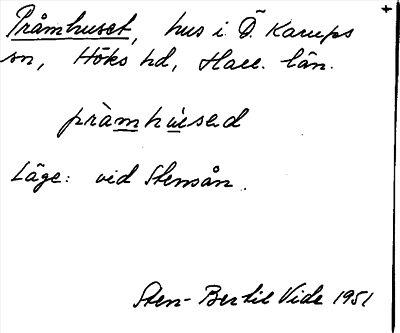 Pråmhuset, hus i Ö Karups +
sn, Höks hd, Hall. län.
pràmhùsed
Läge: vid Stensån.
Sten-Bertil Vide 1951